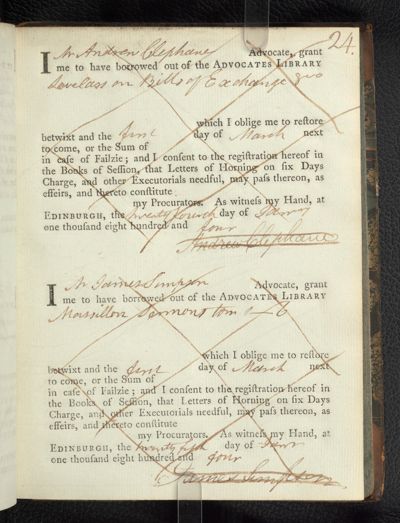 24.
I Mr Andrew Clephane Advocate, grant
me to have borrowed out of the ADVOCATES LIBRARY
Lovelass on Bills of Exchange 8vo
which I oblige me to reſtore
betwixt and the first day of March next
to come, or the Sum of
in caſe of Failzie; and I conſent to the regiſtration hereof in
the Books of Seſſion, that Letters of Horning on ſix Days
Charge, and other Executorials needful, may paſs thereon, as
effeirs, and thereto conſtitute
my Procurators. As witneſs my Hand, at
EDINBURGH, the twenty fourth day of
one thouſand eight hundred and four
Andrew Clephane
I Mr James Simpson Advocate, grant
me to have borrowed out of the ADVOCATES LIBRARY
Massillon Sermons tom
which I oblige me to reſtore
betwixt and the first day of March next
to come, or the Sum of
in caſe of Failzie; and I conſent to the regiſtration hereof in
the Books of Seſſion, that Letters of Horning on ſix Days
Charge, and other Executorials needful, may paſs thereon, as
effeirs, and thereto conſtitute
my Procurators. As witneſs my Hand, at
EDINBURGH, the twenty fifth day of
one thouſand eight hundred and four
James Simpson